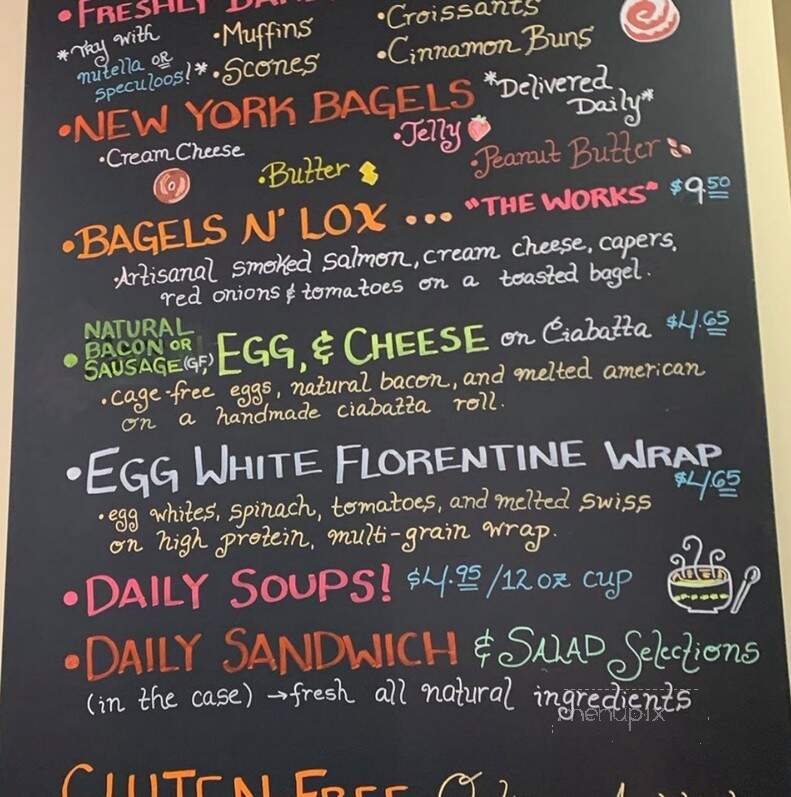 •FRESHLY
*Try with
nutella OR
speculoos!*
•Muffins
•Scones
•Croissants
•Cinnamon Buns
•NEW YORK BAGELS *Delivered
Daily*
•Cream Cheese
•Butter
•Jelly
•Peanut Butter
•BAGELS N' LOX ... "THE WORKS" $9.50
•Artisanal smoked salmon, cream cheese, capers,
red onions & tomatoes on a toasted bagel.
•NATURAL
BACON OR
SAUSAGE (GF,) EGG, & CHEESE on Ciabatta $4.65
•cage-free eggs, natural bacon, and melted american
on a handmade ciabatta roll.
•EGG WHITE FLORENTINE WRAP
$4.65
•egg whites, spinach, tomatoes, and melted swiss
on high protein, multi-grain wrap.
•DAILY SOUPS! $4.95/12 oz cup
•DAILY SANDWICH & SALAD Selections
(in the case) → fresh all natural ingredients
menupix
GLUTEN FREE